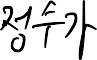 정수가